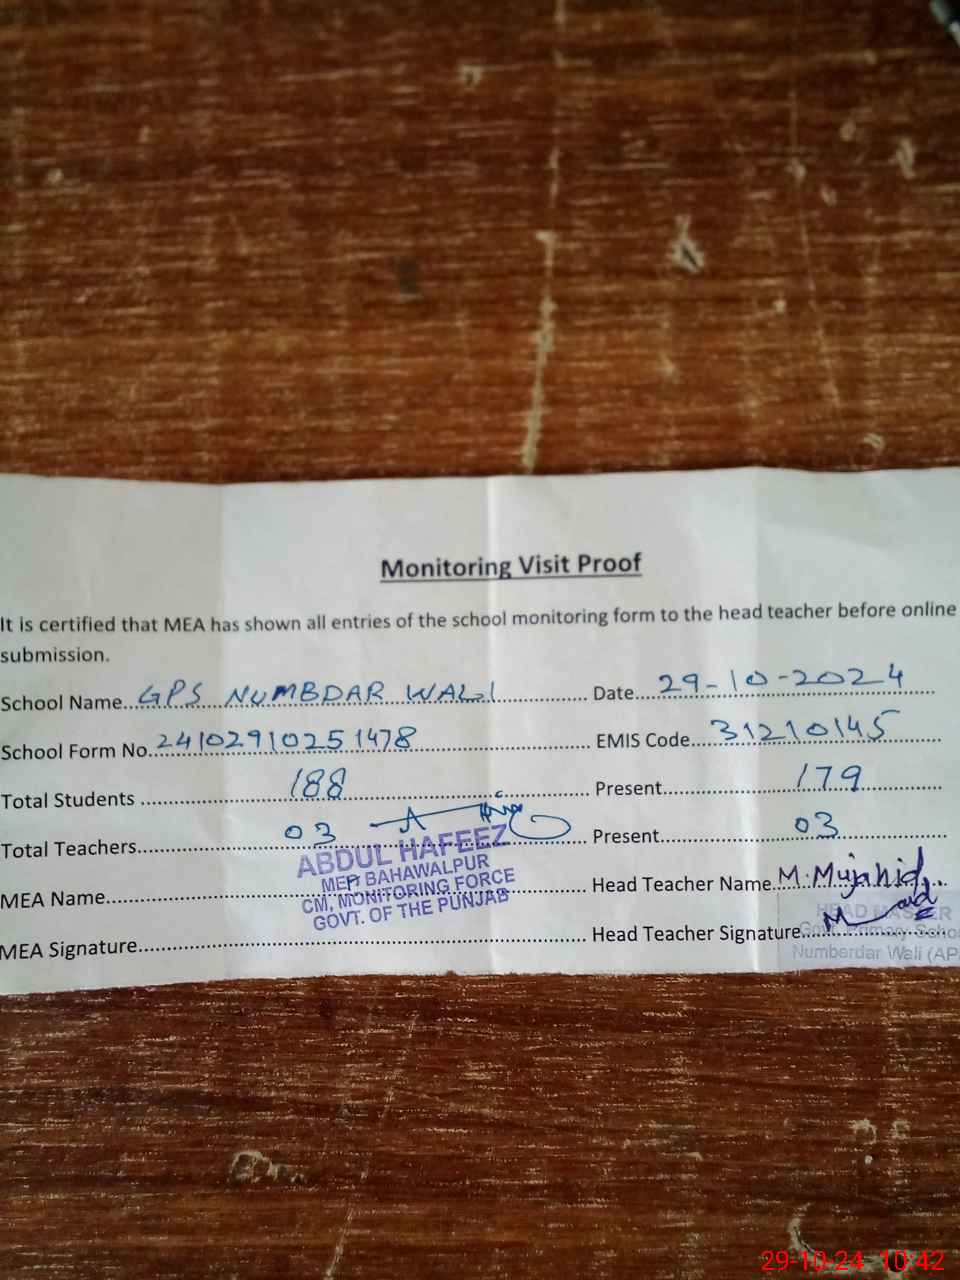 Monitoring Visit Proof
It is certified that MEA has shown all entries of the school monitoring form to the head teacher before online
submission.
School Name..GPS NUMBDAR WALI.......... Date...29-10-2024....
School Form No.24102910251478.......... EMIS Code...31210145......
Total Students ......188.......... Present......179......
Total Teachers......03.......... Present......03......
MEA Name.......... Head Teacher Name.M.Mujahid..
MEA Signature.......... Head Teacher Signature......
ABDUL HAFEEZ
MEA BAHAWALPUR
CM, MONITORING FORCE
GOVT. OF THE PUNJAB
HEAD MASTER
Govt. Primary Schoo
Numberdar Wali (AP
29-10-24 10:42